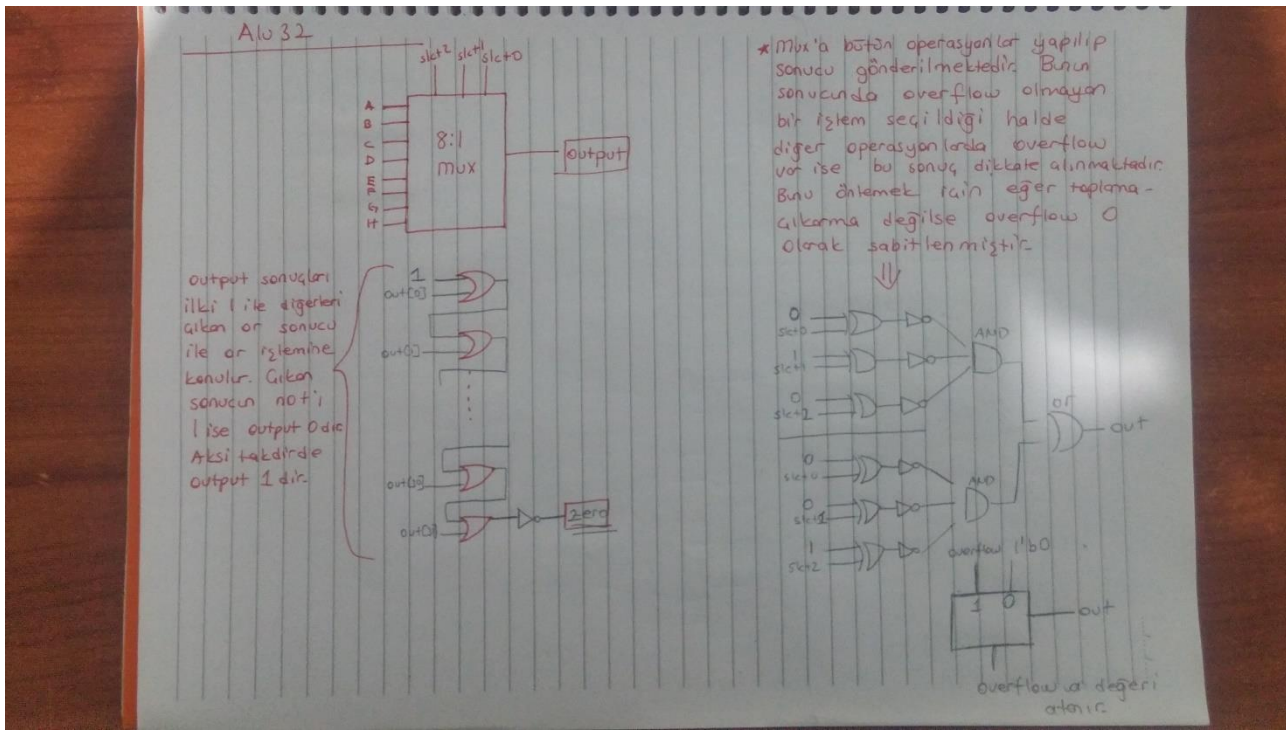 Alu 32
slct2 slct1 slct0
A
B
C
D
E
F
G
H
8:1
mux
output
output sonuçları
ilki 1 ile diğerleri
çıkan or sonucu
ile or işlemine
konulur. Çıkan
sonucun not'ı
1 ise output 0 dır
Aksi takdirde
output 1 dir.
1
out[0]
zero
* Mux'a bütün operasyonlar yapılıp
sonucu gönderilmektedir. Bunun
sonucunda overflow olmayan
bir işlem seçildiği halde
diğer operasyonlarda overflow
var ise bu sonuç dikkate alınmaktadır.
Bunu önlemek için eğer toplama-
çıkarma değilse overflow 0
olarak sabitlenmiştir.
0
slct0
1
slct1
0
slct2
AND
or
out
0
slct0
0
slct1
1
slct2
AND
overflow 1'b0
1 0
out
overflow değeri
atanır.